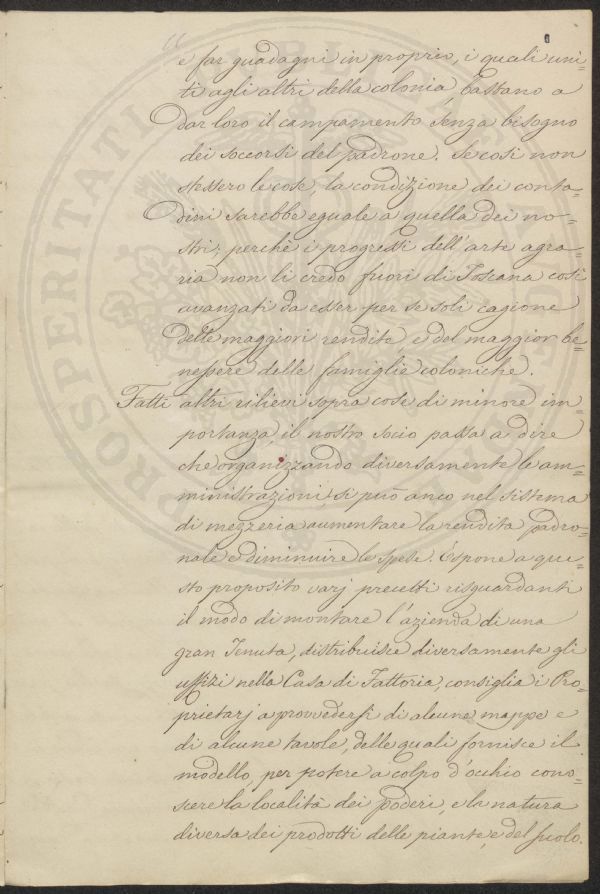 e far guadagni in proprio, i quali uni=
ti agli altri della colonia, bastano a
dar loro il campamento senza bisogno
dei soccorsi del padrone. Se così non
stessero le cose, la condizione dei conta=
dini sarebbe eguale a quella dei no=
stri; perchè i progressi dell'arte agra=
ria non li credo fuori di Toscana così
avanzati da esser per se soli cagione
delle maggiori rendite, e del maggior be=
nessere delle famiglie coloniche.
Fatti altri rilievi sopra cose di minore im=
portanza, il nostro socio passa a dire
che organizzando diversamente le am=
ministrazioni, si può anco nel sistema
di mezzeria aumentare la rendita padro=
nale e diminuire le spese. Espone a que=
sto proposito varj precetti risguardanti
il modo di montare l'azienda di una
gran Tenuta, distribuisce diversamente gli
uffizi nella Casa di Fattoria, consiglia i Pro=
prietarj a provvedersi di alcune mappe e
di alcune tavole, delle quali fornisce il
modello, per potere a colpo d'occhio cono=
scere la località dei poderi, e la natura
diversa dei prodotti delle piante, e del suolo.
PROSPERITATI